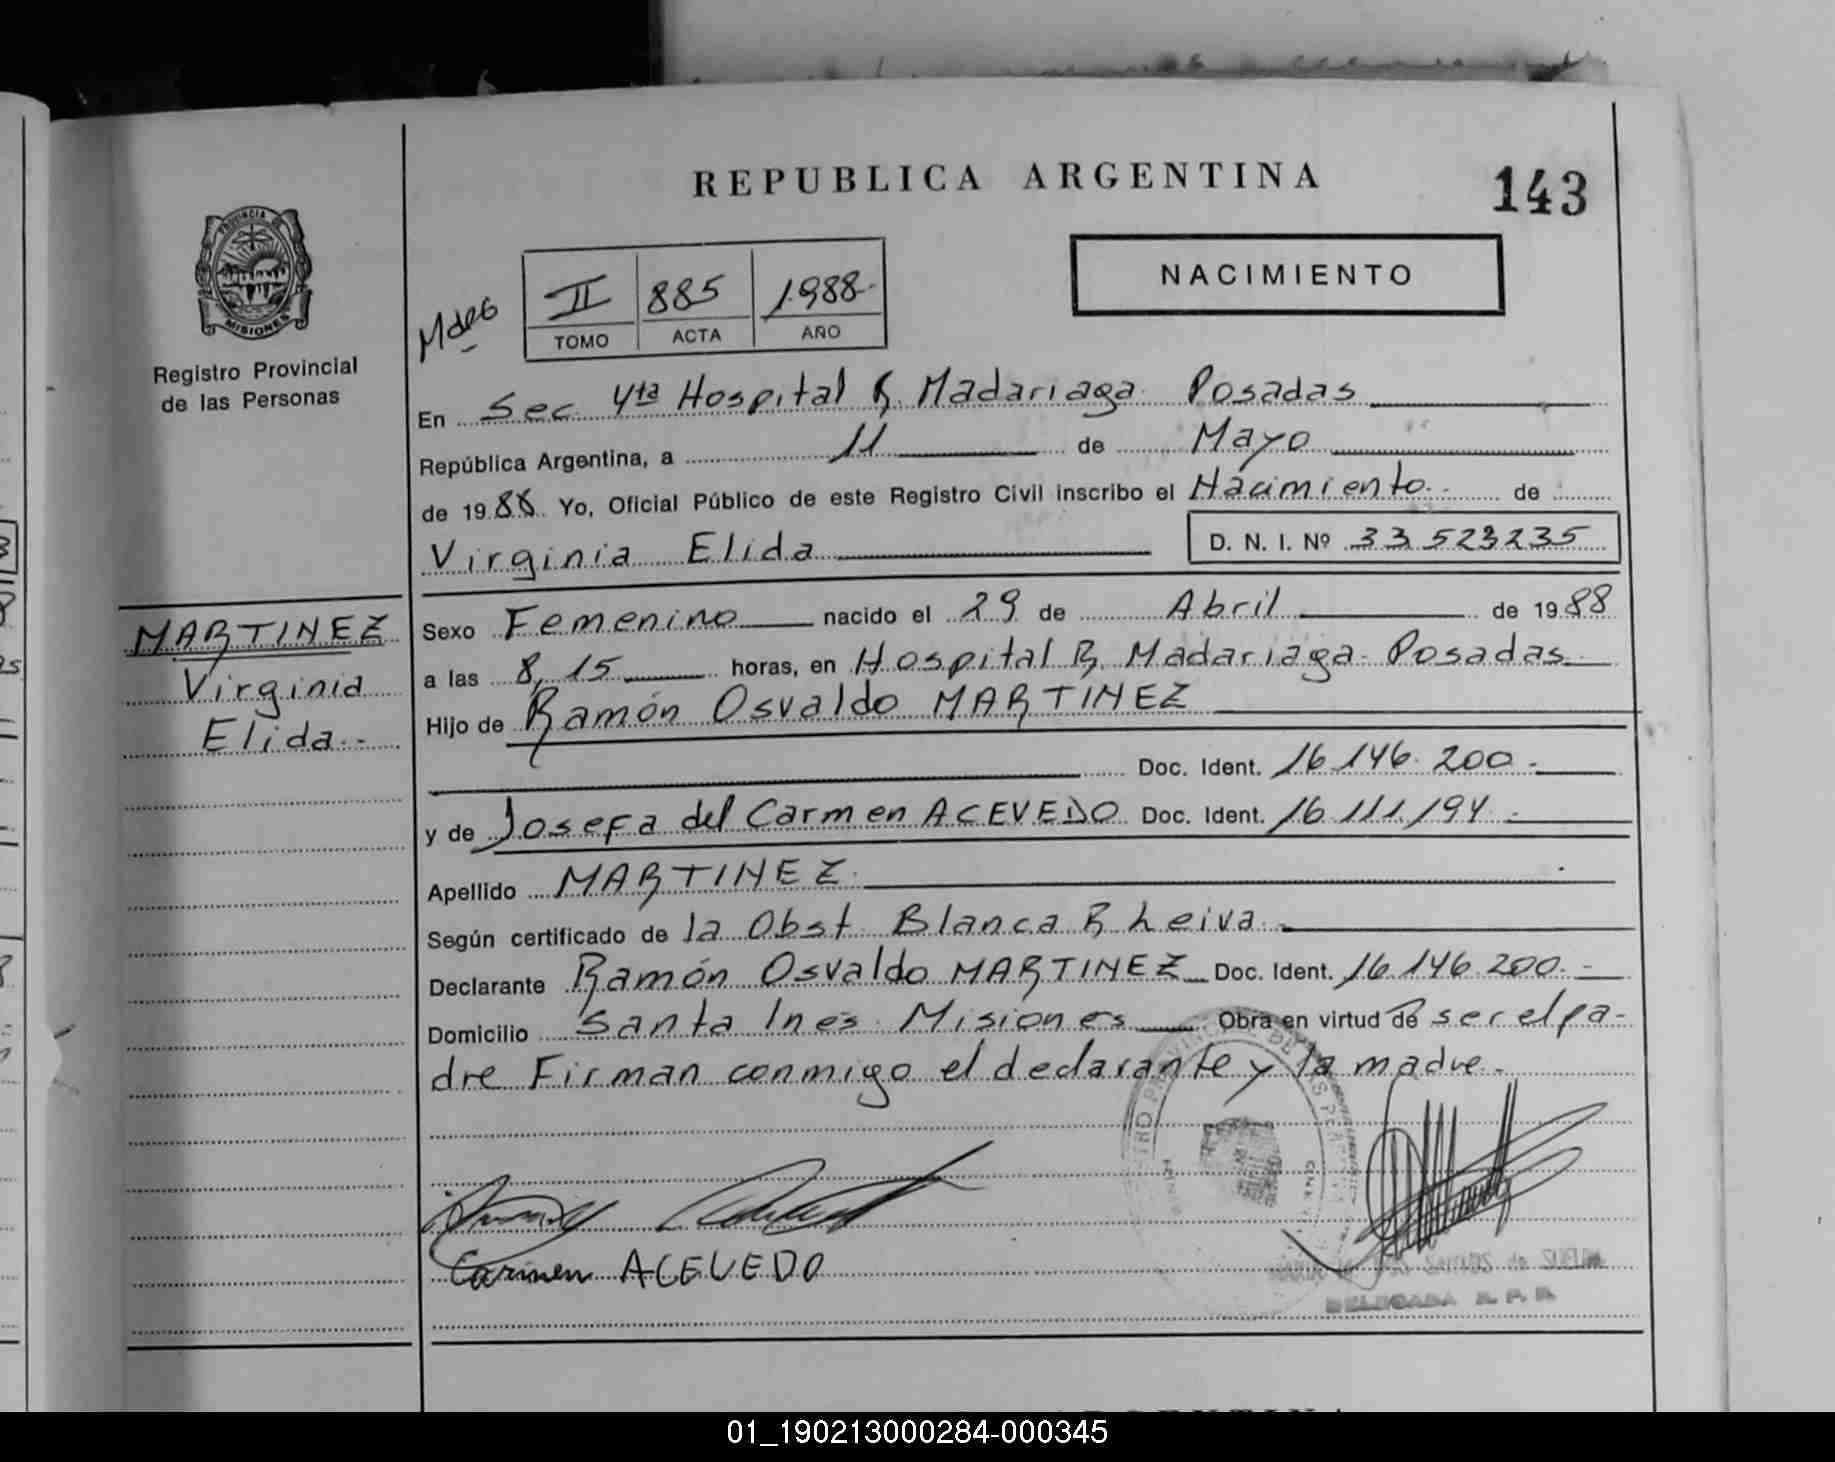 REPUBLICA ARGENTINA
143
PROVINCIA
MISIONES
Registro Provincial
de las Personas
NACIMIENTO
II 885 1988
TOMO ACTA AÑO
En Sec 4ta Hospital R. Madariaga Posadas
República Argentina, a 11 de Mayo
de 1988 Yo, Oficial Público de este Registro Civil inscribo el Nacimiento de
Virginia Elida D. N. I. Nº 33 523235
MARTINEZ
Virginia
Elida
Sexo Femenino nacido el 29 de Abril de 1988
a las 8,15 horas, en Hospital R. Madariaga Posadas
Hijo de Ramón Osvaldo MARTINEZ
Doc. Ident. 16.146.200
y de Josefa del Carmen ACEVEDO Doc. Ident. 16.111.194
Apellido MARTINEZ
Según certificado de la Obst. Blanca R Leiva
Declarante Ramón Osvaldo MARTINEZ Doc. Ident. 16.146.200
Domicilio Santa Inés Misiones Obra en virtud de ser el pa-
dre Firman conmigo el declarante y la madre.
Carmen ACEVEDO
DELEGADA R. P. P.
01_190213000284-000345